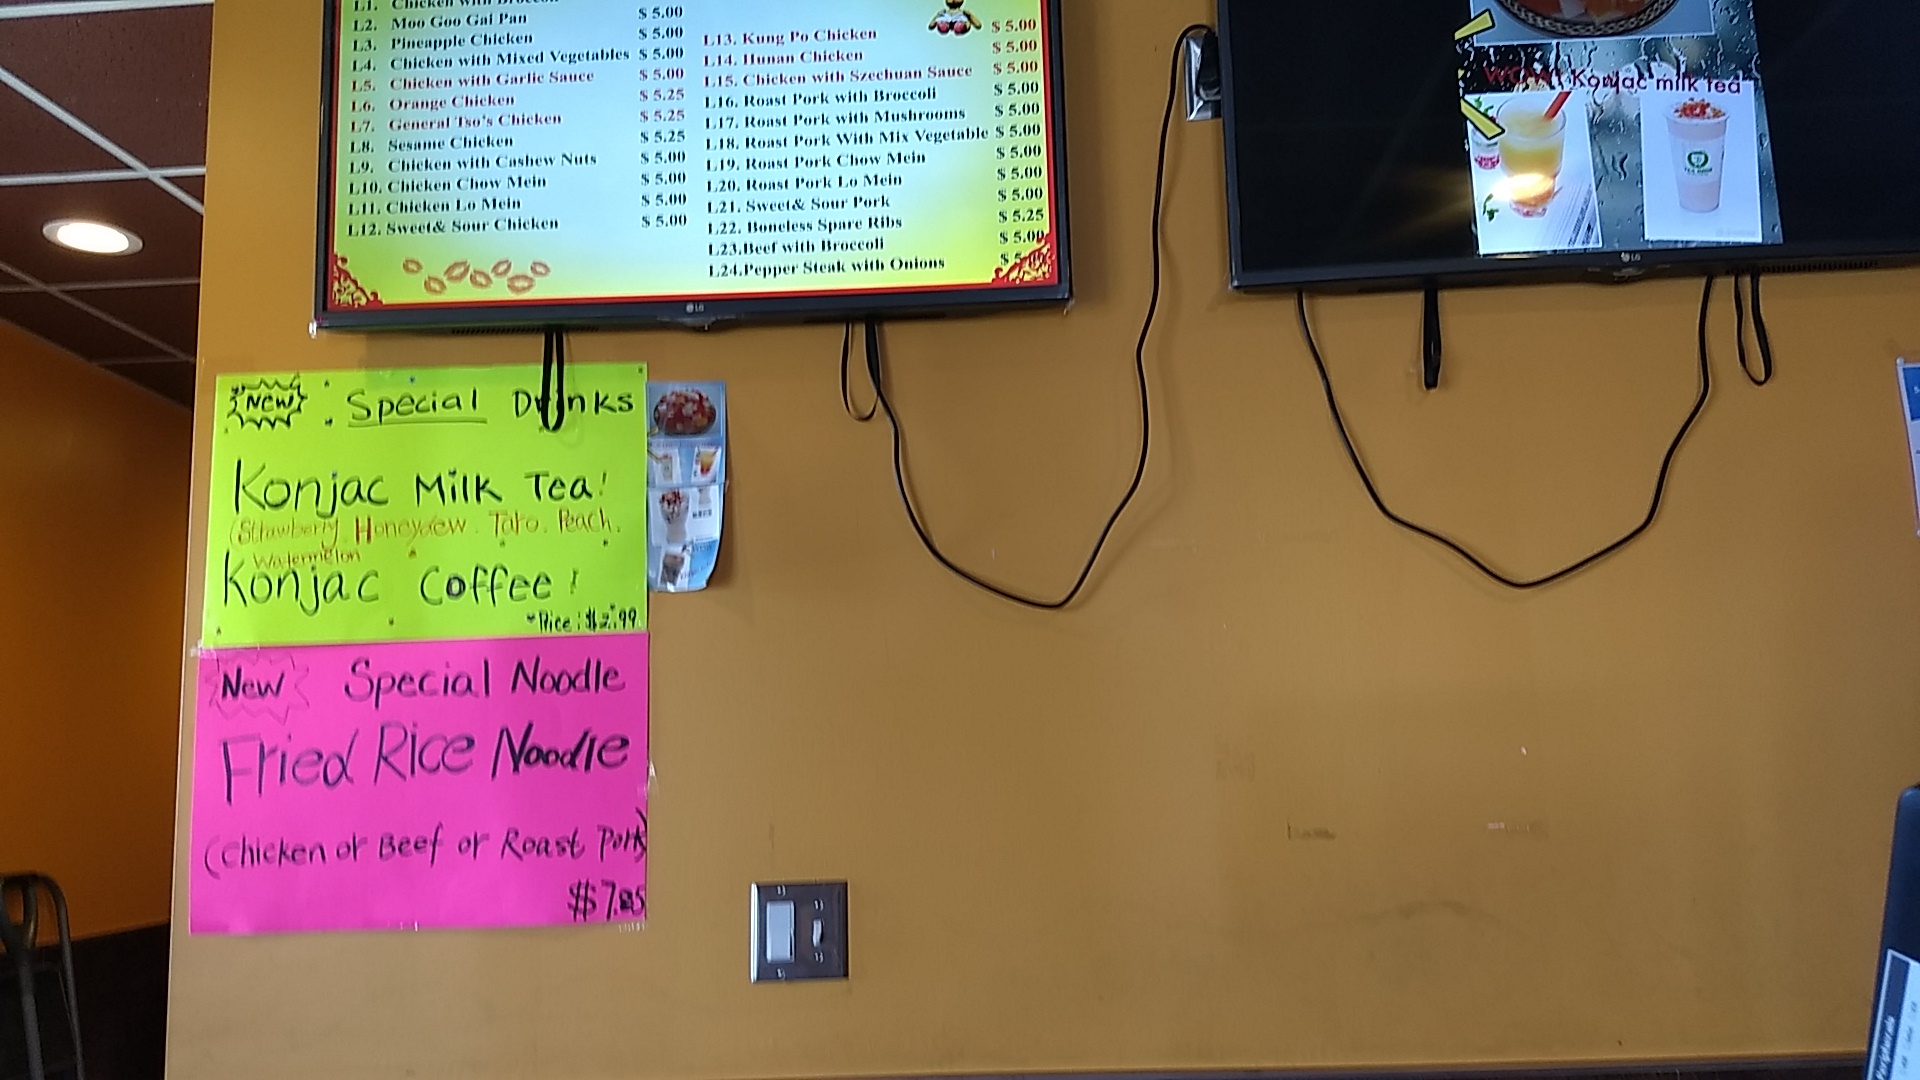 L1. Chicken with Broccoli
L2. Moo Goo Gai Pan $ 5.00
L3. Pineapple Chicken $ 5.00
L4. Chicken with Mixed Vegetables $ 5.00
L5. Chicken with Garlic Sauce $ 5.00
L6. Orange Chicken $ 5.25
L7. General Tso's Chicken $ 5.25
L8. Sesame Chicken $ 5.25
L9. Chicken with Cashew Nuts $ 5.00
L10. Chicken Chow Mein $ 5.00
L11. Chicken Lo Mein $ 5.00
L12. Sweet& Sour Chicken $ 5.00
L13. Kung Po Chicken $ 5.00
L14. Hunan Chicken $ 5.00
L15. Chicken with Szechuan Sauce $ 5.00
L16. Roast Pork with Broccoli $ 5.00
L17. Roast Pork with Mushrooms $ 5.00
L18. Roast Pork With Mix Vegetable $ 5.00
L19. Roast Pork Chow Mein $ 5.00
L20. Roast Pork Lo Mein $ 5.00
L21. Sweet& Sour Pork $ 5.00
L22. Boneless Spare Ribs $ 5.25
L23.Beef with Broccoli $ 5.00
L24.Pepper Steak with Onions
LG
WOW! Konjac milk tea
LG
New Special Drinks
Konjac Milk Tea!
(Strawberry. Honeydew. Taro. Peach.
Watermelon
Konjac Coffee!
*Price: $2.99
New Special Noodle
Fried Rice Noodle
(Chicken or Beef or Roast Pork)